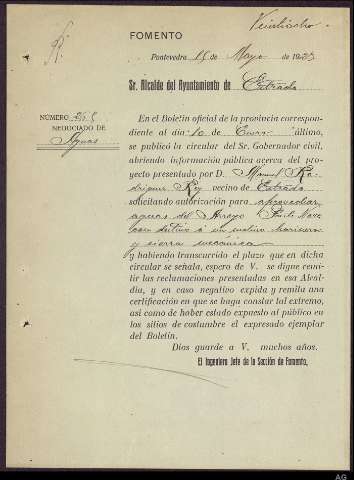 Veintiocho
FOMENTO
Pontevedra 15 de Mayo de 1923
Sr. Alcalde del Ayuntamiento de Estrada
NÚMERO
NEGOCIADO DE
Aguas
En el Boletín oficial de la provincia correspon-
diente al día 10 de Enero último,
se publicó la circular del Sr. Gobernador civil,
abriendo información pública acerca del pro-
yecto presentado por D. Manuel Ro-
driguez Rey vecino de Estrada
solicitando autorización para aprovechar
aguas del Arroyo
con destino á un molino harinero
y sierra mecánica
y habiendo transcurrido el plazo que en dicha
circular se señala, espero de V. se digne remi-
tir las reclamaciones presentadas en esa Alcal-
día, y en caso negativo expida y remita una
certificación en que se haga constar tal extremo,
así como de haber estado expuesto al público en
los sitios de costumbre el expresado ejemplar
del Boletín.
Dios guarde a V. muchos años.
El Ingeniero Jefe de la Sección de Fomento,
AG